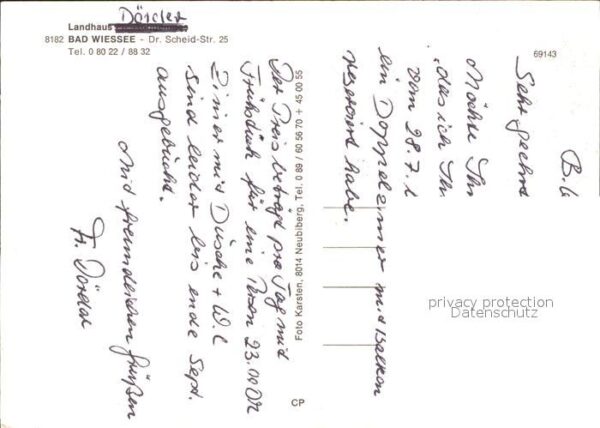 Landhaus Dörder
8182 BAD WIESSEE - Dr. Scheid-Str. 25
Tel. 0 80 22 / 88 32
69143
B.
Sehr geehrt
Möchte Ihn
das ich Ih.
vom 28.7.
ein Doppelzimer mid Balkon
reserwird habe.
Foto Karsten, 8014 Neubiberg, Tel. 0 89 / 60 56 70 + 45 00 55
CP
Der Preis beträgt pro Tag mid
Frühstück für eine Person 23.00 DM
Zimer mid Dusche + W.C
sind leider bis ende Sept.
ausgebucht.
Mid freundlichen Grüßen
Fr. Dörder
privacy protection
Datenschutz